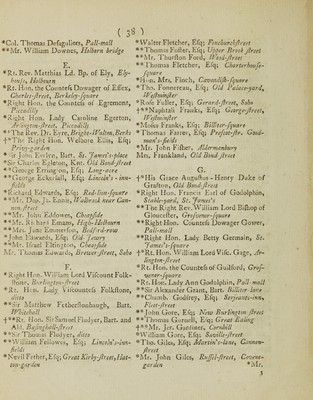 ( 38 )
*Col. Thomas Desaguliers, Pall-mall
**Mr. William Downes, Holborn bridge
E.
*Rt. Rev. Matthias Ld. Bp. of Ely, Ely-house, Holbourn
*Rt. Hon. the Countess Dowager of Essex, Charles-street, Berkeley-square
*Right Hon. the Countess of Egremont, Piccadilly
*Right Hon. Lady Caroline Egerton, Arlington-street, Piccadilly
*The Rev. Dr. Eyre, Bright-Walton, Berks
†*The Right Hon. Welbore Ellis, Esq; Privy-garden
*Sir John Evelyn, Bart. St. James's-place
*Sir Charles Egleton, Knt. Old Bond-street
*George Errington, Esq; Long-acre
**George Eckersall, Esq; Lincoln's-inn-fields
*Richard Edwards, Esq; Red-lion-square
**Mr. Dep. Ja. Ennis, Walbrook near Cannon-street
**Mr. John Eddowes, Cheapside
**Mr. Richard Emans, High-Holbourn
**Mrs. Jane Emmerson, Bedford-row
*John Edwards, Esq; Old Jewry
**Mr. Israel Eltington, Cheapside
Mr. Thomas Edwards, Brewer street, Soho
F.
*Right Hon. William Lord Viscount Folkstone, Burlington-street
*Rt. Hon. Lady Viscountess Folkstone, ditto
**Sir Matthew Fetherstonhaugh, Bart. Whitehall
†**Rt. Hon. Sir Samuel Fludyer, Bart. and Ald. Basinghall-street
**Sir Thomas Fludyer, ditto
**William Fellowes, Esq; Lincoln's-inn-fields
*Nevil Fether, Esq; Great Kirby-street, Hatton-garden
*Walter Fletcher, Esq; Fenchurch-street
**Thomas Foster, Esq; Upper Brook street
**Mr. Thurston Ford, Wood-street
**Thomas Fletcher, Esq; Charterhouse-square
*Hon. Mrs. Finch, Cavendish-square
*Tho. Fonnereau, Esq; Old Palace-yard, Westminster
*Rose Fuller, Esq; Gerard-street, Soho
†**Naphtali Franks, Esq; George-street, Westminster
*Moses Franks, Esq; Billiter-square
*Thomas Farrer, Esq; Prescot-str. Goodman's-fields
*Mr. John Fisher, Aldermanbury
Mrs. Frankland, Old Bond street
G.
†*His Grace Augustus-Henry Duke of Grafton, Old Bond-street
*Right Hon. Francis Earl of Godolphin, Stable-yard, St. James's
*The Right Rev. William Lord Bishop of Gloucester, Grosvenor-square
*Right Hon. Countess Dowager Gower, Pall-mall
*Right Hon. Lady Betty Germain, St. James's-square
†*Rt. Hon. William Lord Visc. Gage, Arlington-street
*Rt. Hon. the Countess of Guilford, Grosvenor-square
*Rt. Hon. Lady Ann Godolphin, Pall mall
**Sir Alexander Grant, Bart. Billiter lane
**Chamb. Godfrey, Esq; Serjeants-inn, Fleet-street
**John Gore, Esq; New Burlington street
*Thomas Gurnell, Esq; Great Ealing
†**Mr. Jer. Gardiner, Cornhill
**William Gore, Esq; Saville-street
*Tho. Giles, Esq; Martin's-lane, Cannon-street
*Mr. John Giles, Russel-street, Covent-garden
*Mr.
3